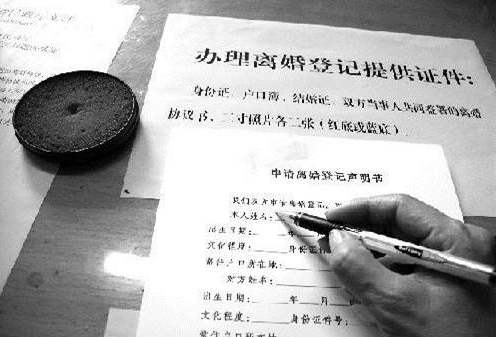 办理离婚登记提供证件：
身份证、户口薄、结婚证、双方当事人共同签署的离婚
协议书、二寸照片各二张（红底或蓝底）
申请离婚登记声明书
我们双方申请离婚登记，
本人姓名：
出生日期：____年__月
文化程度：____身份证件
常住户口所在地：
对方姓名：
出生日期：____年__月
文化程度：____身份证件号：
常住户口所在地